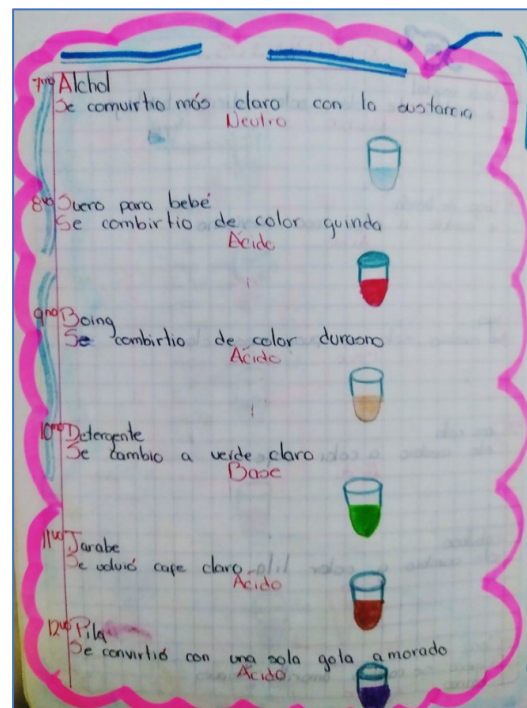 7mo Alchol
Se comvirtio más claro con la sustancia
Neutro
8vo Suero para bebé
Se combirtio de color guinda
Ácido
9no Boing
Se combirtio de color durasno
Ácido
10mo Detergente
Se cambio a verde claro
Base
11vo Jarabe
Se volvió cafe claro
Ácido
12vo Pila
Se convirtió con una sola gota a morado
Ácido